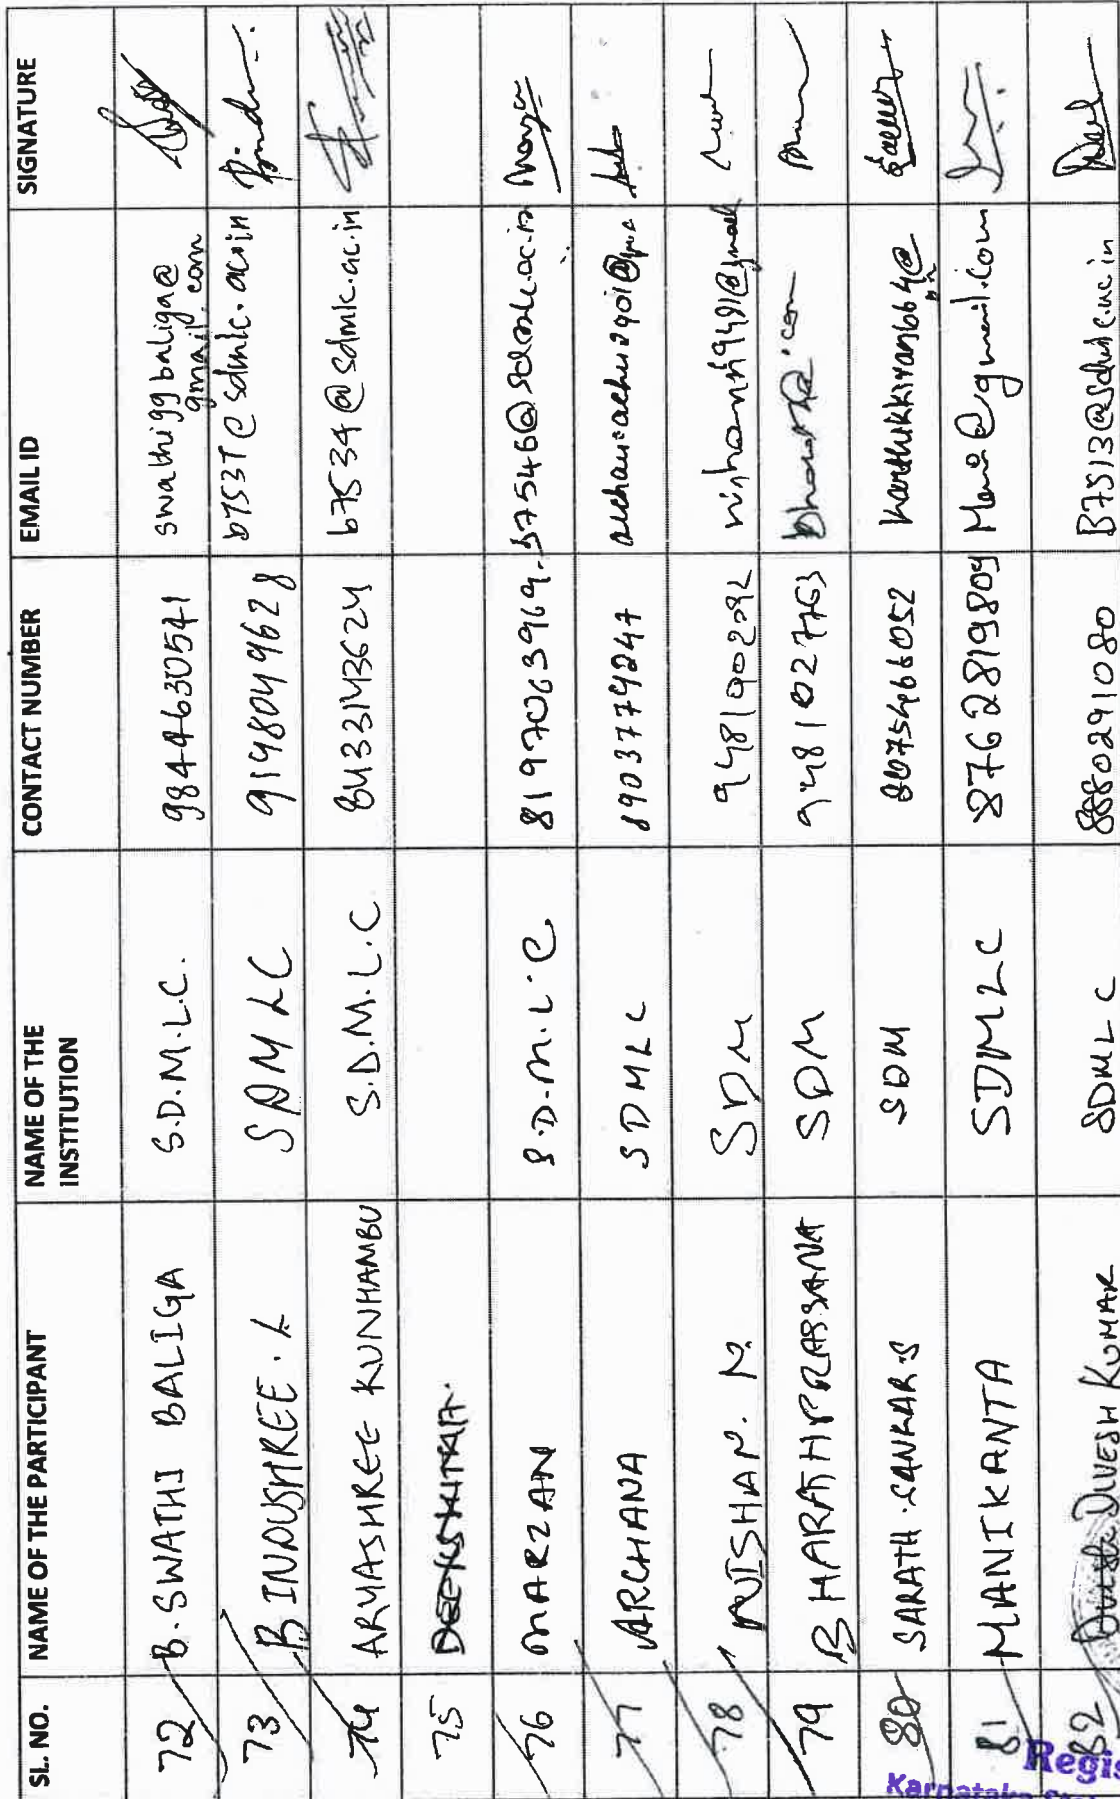 SL. NO. NAME OF THE PARTICIPANT NAME OF THE INSTITUTION CONTACT NUMBER EMAIL ID SIGNATURE
72 B. SWATHI BALIGA S.D.M.L.C. 9844630541 swathiggbaliga@gmail.com
73 BINDUSHREE. L SDMLC 9198049628 b753T@sdmlc.ac.in Bindu
74 ARYASHREE KUNHAMBU S.D.M.L.C 8433143624 b7534@sdmlc.ac.in
75 DEEKSHITHA.
76 MARZAN S.D.M.L.C. 8197063969 b7546@sdmlc.ac.in
77 ARCHANA SDMLC 8903779247
78 NISHAN. N. SDM 9481900292 nishann9481@gmail
79 BHARATHPRASSANA SDM 9481027763
80 SARATH.SANKAR.S SDM 8075466052
81 MANIKANTA SDMLC 8762819809 Mani@gmail.com
82 DIVESH KUMAR SDMLC 8880291080 B7513@sdmlc.ac.in
Regis
Karnataka